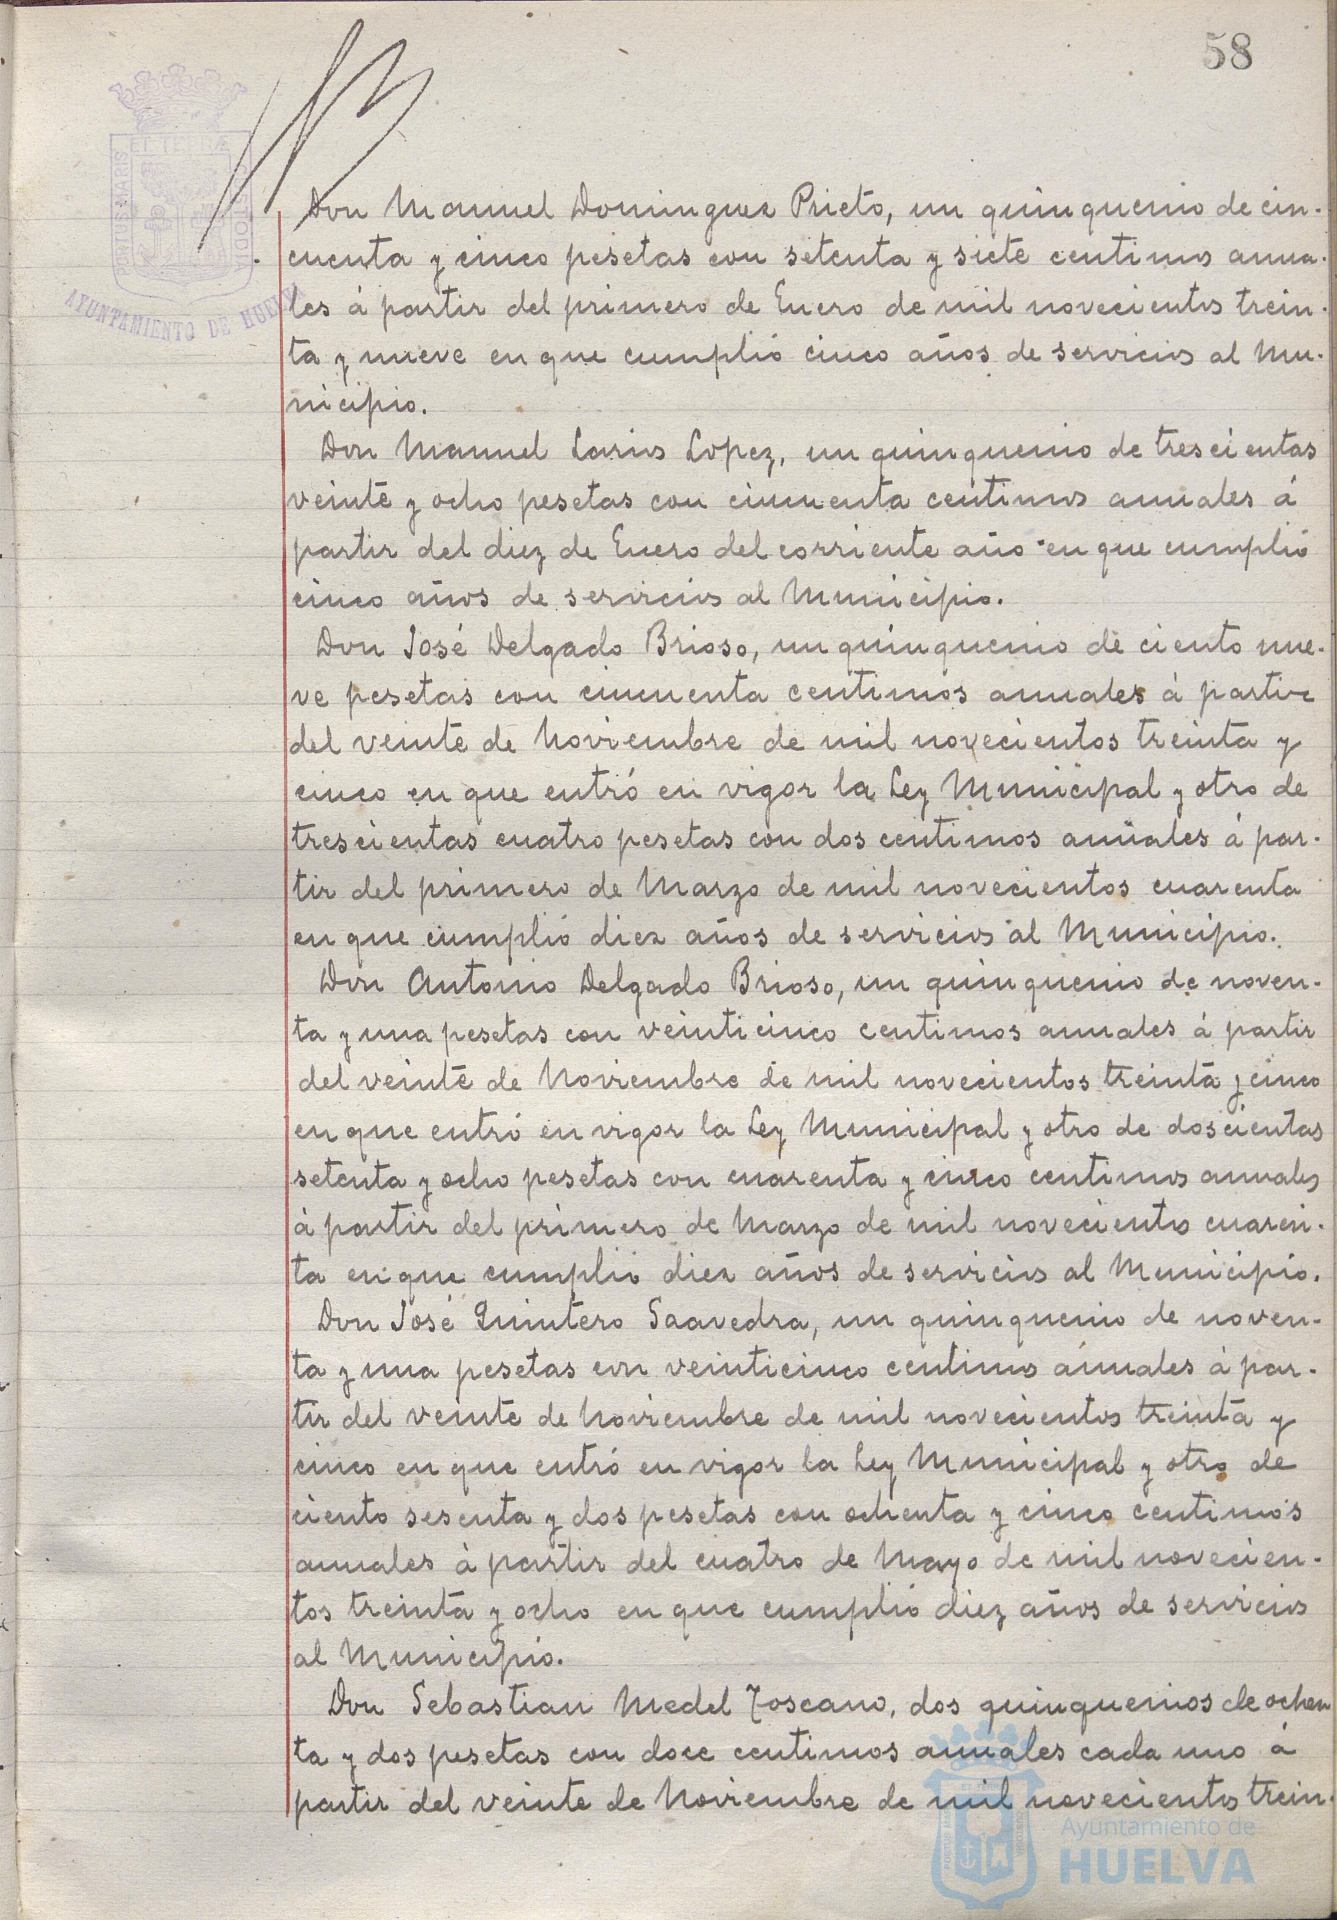 58
PORTUS MARIS ET TERRÆ CUSTODIA
AYUNTAMIENTO DE HUELVA
Don Manuel Dominguez Prieto, un quinquenio de cin-
cuenta y cinco pesetas con setenta y siete centimos anua-
les á partir del primero de Enero de mil novecientos trein-
ta y nueve en que cumplió cinco años de servicios al Mu-
nicipio.
Don Manuel Larios Lopez, un quinquenio de trescientas
veinte y ocho pesetas con cincuenta centimos anuales á
partir del diez de Enero del corriente año en que cumplió
cinco años de servicios al Municipio.
Don José Delgado Brioso, un quinquenio de ciento nue-
ve pesetas con cincuenta centimos anuales á partir
del veinte de Noviembre de mil novecientos treinta y
cinco en que entró en vigor la Ley Municipal y otro de
trescientas cuatro pesetas con dos centimos anuales á par-
tir del primero de Marzo de mil novecientos cuarenta
en que cumplió diez años de servicios al Municipio.
Don Antonio Delgado Brioso, un quinquenio de noven-
ta y una pesetas con veinticinco centimos anuales á partir
del veinte de Noviembre de mil novecientos treinta y cinco
en que entró en vigor la Ley Municipal y otro de doscientas
setenta y ocho pesetas con cuarenta y cinco centimos anuales
á partir del primero de Marzo de mil novecientos cuaren-
ta en que cumplió diez años de servicios al Municipio.
Don José Quintero Saavedra, un quinquenio de noven-
ta y una pesetas con veinticinco centimos anuales á par-
tir del veinte de Noviembre de mil novecientos treinta y
cinco en que entró en vigor la Ley Municipal y otro de
ciento sesenta y dos pesetas con ochenta y cinco centimos
anuales á partir del cuatro de Mayo de mil novecien-
tos treinta y ocho en que cumplió diez años de servicios
al Municipio.
Don Sebastian Medel Toscano, dos quinquenios de ochen
ta y dos pesetas con doce centimos anuales cada uno á
partir del veinte de Noviembre de mil novecientos trein-
Ayuntamiento de
HUELVA